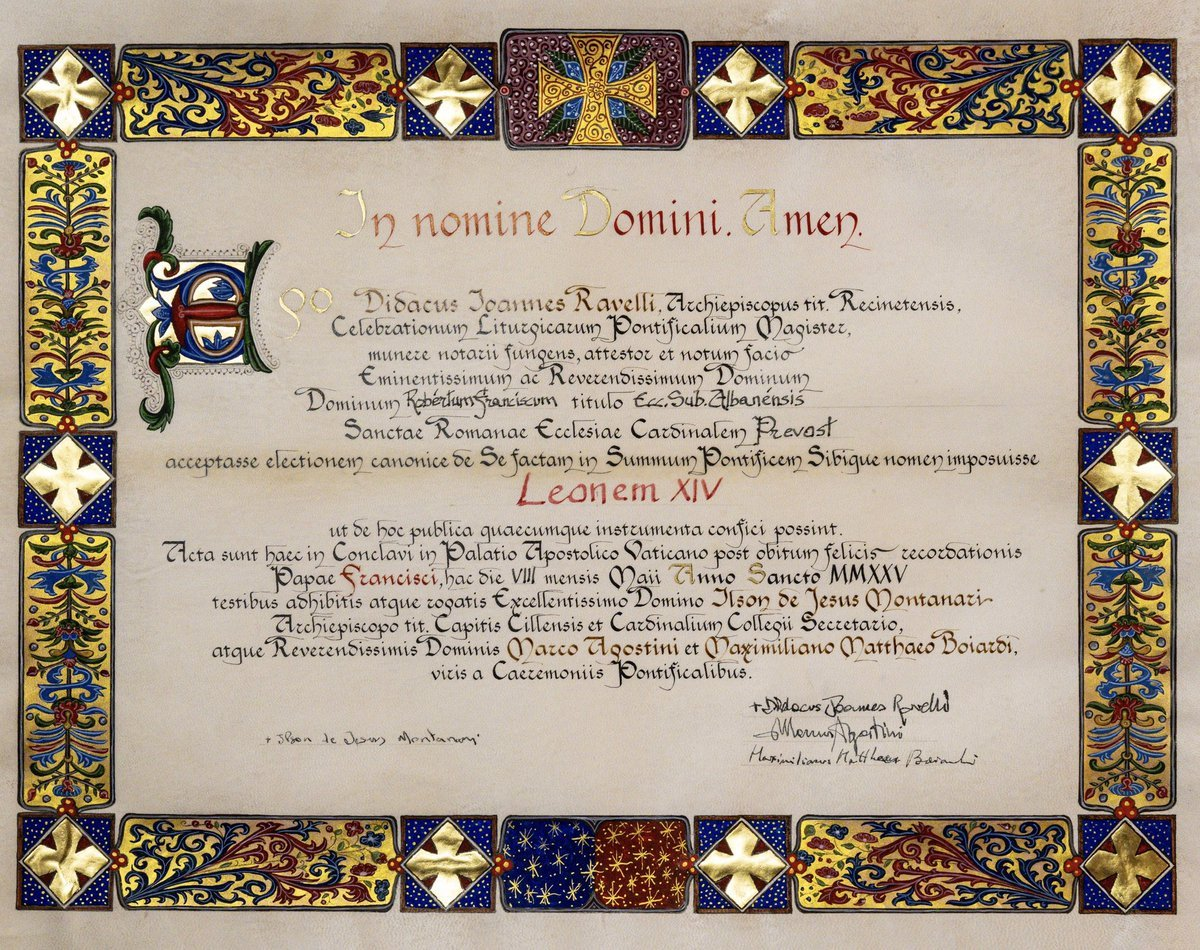 In nomine Domini. Amen.
Ego Didacus Ioannes Ravelli, Archiepiscopus tit. Recinetensis,
Celebrationum Liturgicarum Pontificalium Magister,
munere notarii fungens, attestor et notum facio
Eminentissimum ac Reverendissimum Dominum
Dominum Robertum Franciscum titulo Ecc. Sub. Albanensis
Sanctae Romanae Ecclesiae Cardinalem Prevost
acceptasse electionem canonice de Se factam in Summum Pontificem Sibique nomen imposuisse
Leonem XIV
ut de hoc publica quaecumque instrumenta confici possint.
Acta sunt haec in Conclavi in Palatio Apostolico Vaticano post obitum felicis recordationis
Papae Francisci, hac die VIII mensis Maii Anno Sancto MMXXV
testibus adhibitis atque rogatis Excellentissimo Domino Ilson de Jesus Montanari
Archiepiscopo tit. Capitis Cillensis et Cardinalium Collegii Secretario,
atque Reverendissimis Dominis Marco Agostini et Maximiliano Matthaeo Boiardi,
viris a Caeremoniis Pontificalibus.
+ Didacus Ioannes Ravelli
Marcus Agostini
+ Ilson de Jesus Montanari
Maximilianus Matthaeus Boiardi